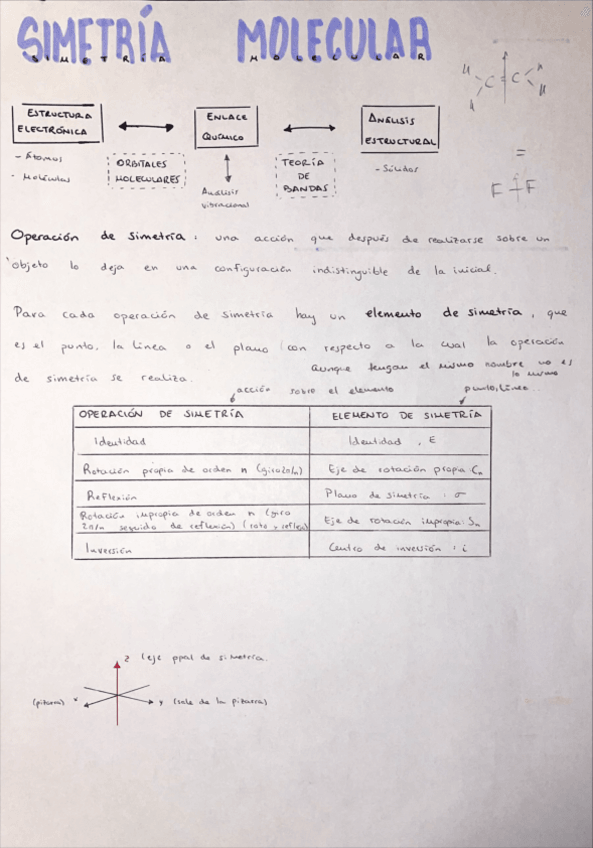 SIMETRÍA MOLECULAR
SIMETRÍA MOLECULAR
H H
C C
H H
=
F F
ESTRUCTURA ELECTRÓNICA
ENLACE QUÍMICO
ANÁLISIS ESTRUCTURAL
- Átomos
- Moléculas
ORBITALES MOLECULARES
Análisis vibracional
TEORÍA DE BANDAS
- Sólidos
Operación de simetría: una acción que después de realizarse sobre un
objeto lo deja en una configuración indistinguible de la inicial.
Para cada operación de simetría hay un elemento de simetría, que
es el punto, la línea o el plano con respecto a la cual la operación
de simetría se realiza.
Aunque tengan el mismo nombre no es lo mismo
acción sobre el elemento
punto, línea...
OPERACIÓN DE SIMETRÍA ELEMENTO DE SIMETRÍA
Identidad Identidad, E
Rotación propia de orden n (giro 2π/n) Eje de rotación propia Cn
Reflexión Plano de simetría: σ
Rotación impropia de orden n (giro
2π/n seguido de reflexión) (rota y reflex) Eje de rotación impropia: Sn
Inversión Centro de inversión: i
z (eje ppal de simetría.
(pizarra) x
y (sale de la pizarra)